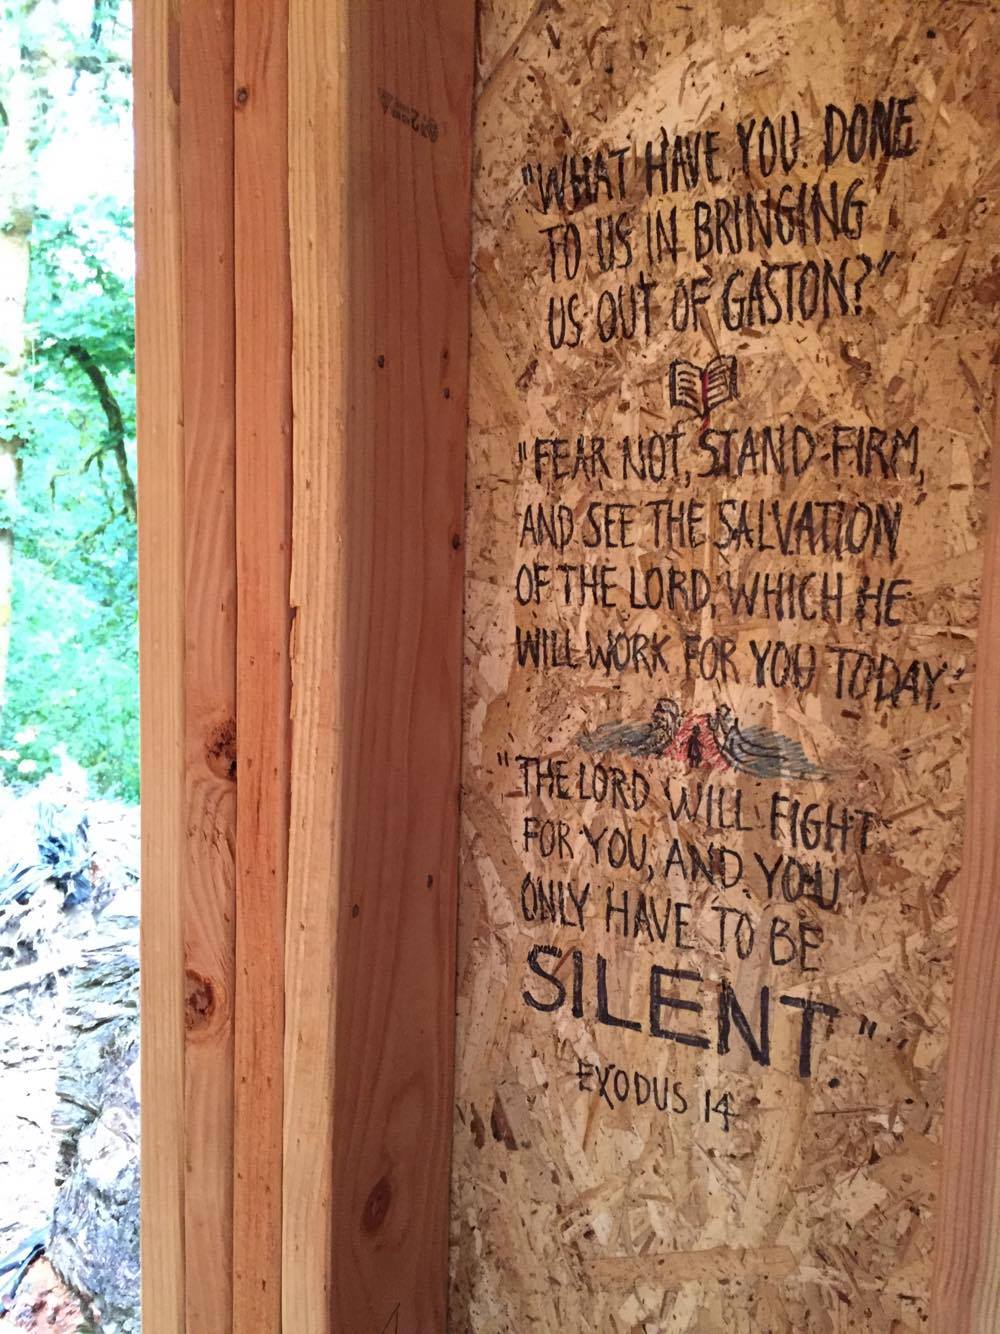 "WHAT HAVE YOU DONE
TO US IN BRINGING
US OUT OF GASTON?"
"FEAR NOT, STAND FIRM,
AND SEE THE SALVATION
OF THE LORD, WHICH HE
WILL WORK FOR YOU TODAY."
"THE LORD WILL FIGHT
FOR YOU, AND YOU
ONLY HAVE TO BE
SILENT."
EXODUS 14